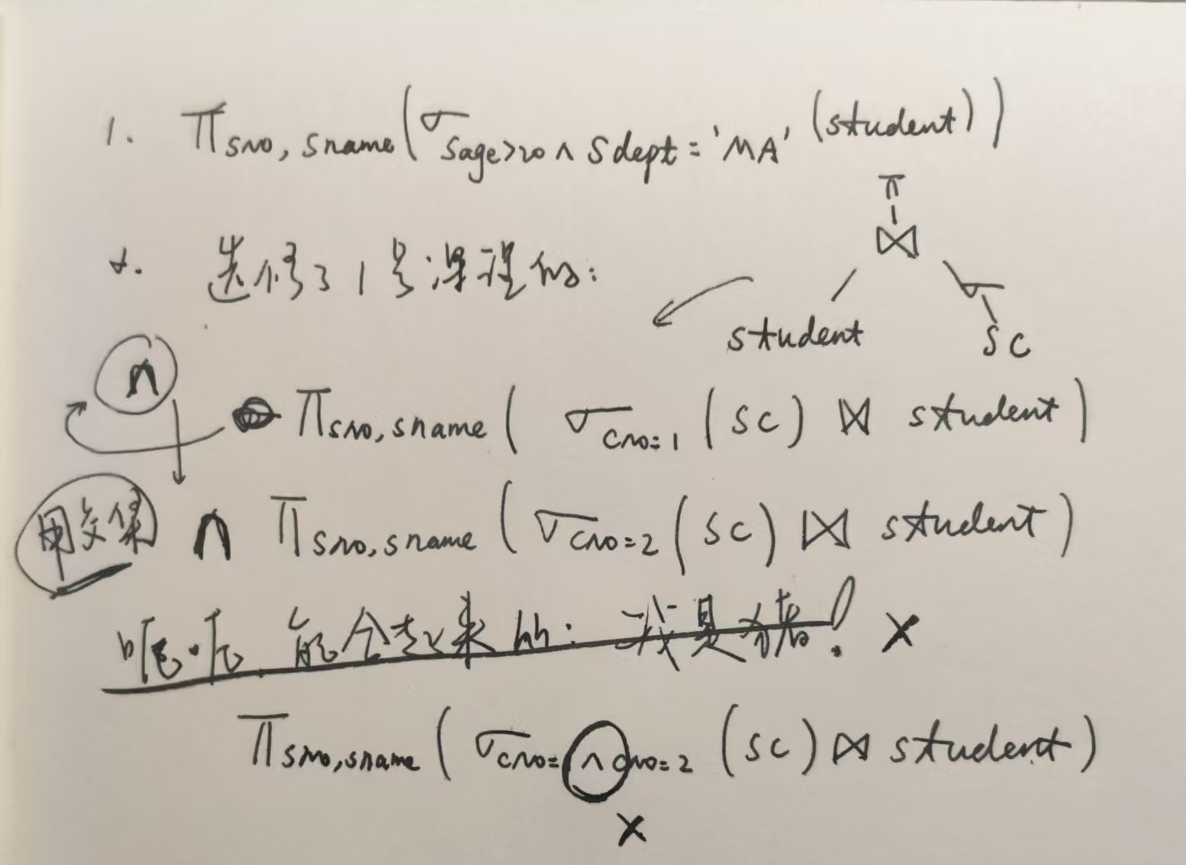 1. π sno, sname (σ sage>20 ∧ sdept = 'MA' (student))
π
⋈
2. 选修了1号课程的:
student
σ
SC
∩
π sno, sname ( σ cno=1 (SC) ⋈ student)
用交集 ∩ π sno, sname (σ cno=2 (SC) ⋈ student)
能合起来 hh: 我是 ! ×
π sno, sname (σ cno= ∧ cno=2 (SC) ⋈ student)
×